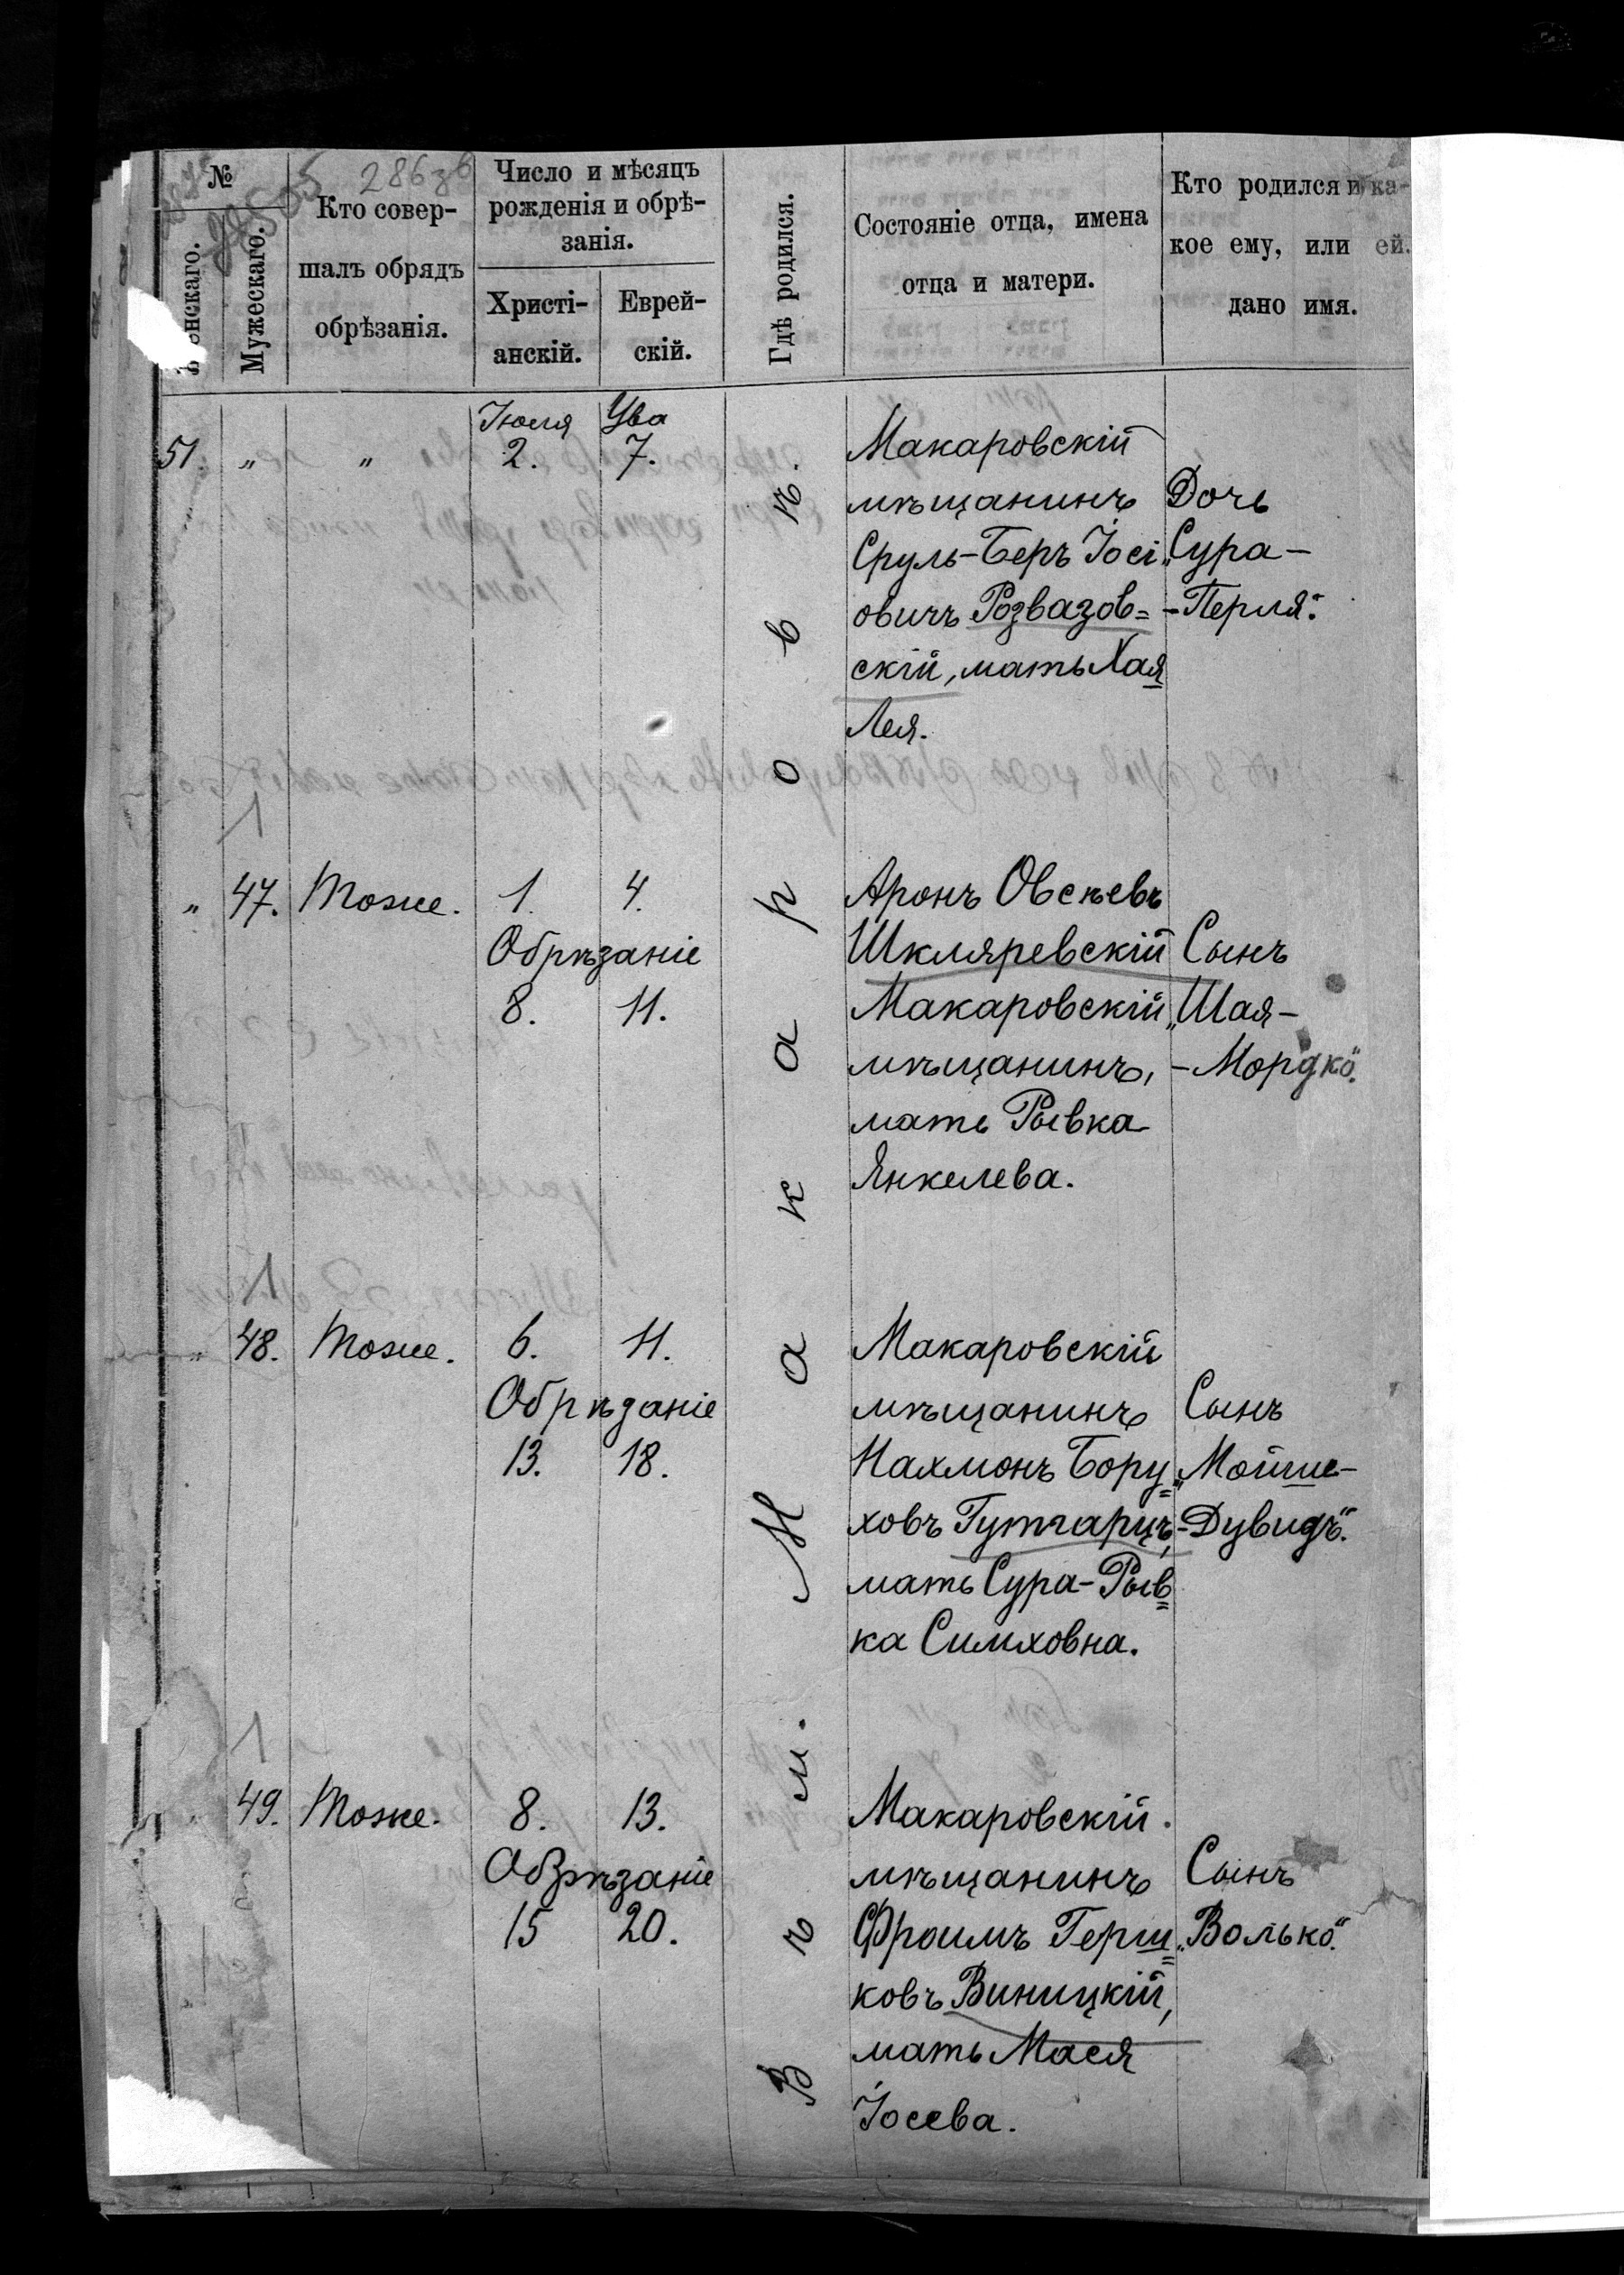 №
286зв
Женскаго.
Мужескаго.
Кто совер-
шалъ обрядъ
обрѣзанія.
Число и мѣсяцъ
рожденія и обрѣ-
занія.
Христі-
анскій.
Еврей-
скій.
Гдѣ родился.
Состояніе отца, имена
отца и матери.
Кто родился и ка-
кое ему, или ей.
дано имя.
Въ м. Макаровѣ.
Іюля Ува
51. „ „ 2. 7.
Макаровскій
мѣщанинъ
Сруль-Беръ Іосі
овичъ Розвазов=
скій, мать Хая
Лея.
Дочь
„Сура-
-Перля“.
1
„ 47. Тоже. 1. 4.
Обрѣзаніе
8. 11.
Аронъ Овсѣевъ
Шкляревскій
Макаровскій
мѣщанинъ,
мать Рывка
Янкелева.
Сынъ
„Шая-
-Мордко“.
1
„ 48. Тоже. 6. 11.
Обрѣзаніе
13. 18.
Макаровскій
мѣщанинъ
Нахмонъ Бору=
ховъ Гутгарцъ,
мать Сура-Рыв=
ка Симховна.
Сынъ
„Мойше-
-Дувидъ“.
1
49. Тоже. 8. 13.
Обрѣзаніе
15 20.
Макаровскій
мѣщанинъ
Фроимъ Герш=
ковъ Виницкій,
мать Мася
Іосева.
Сынъ
„Волько“.